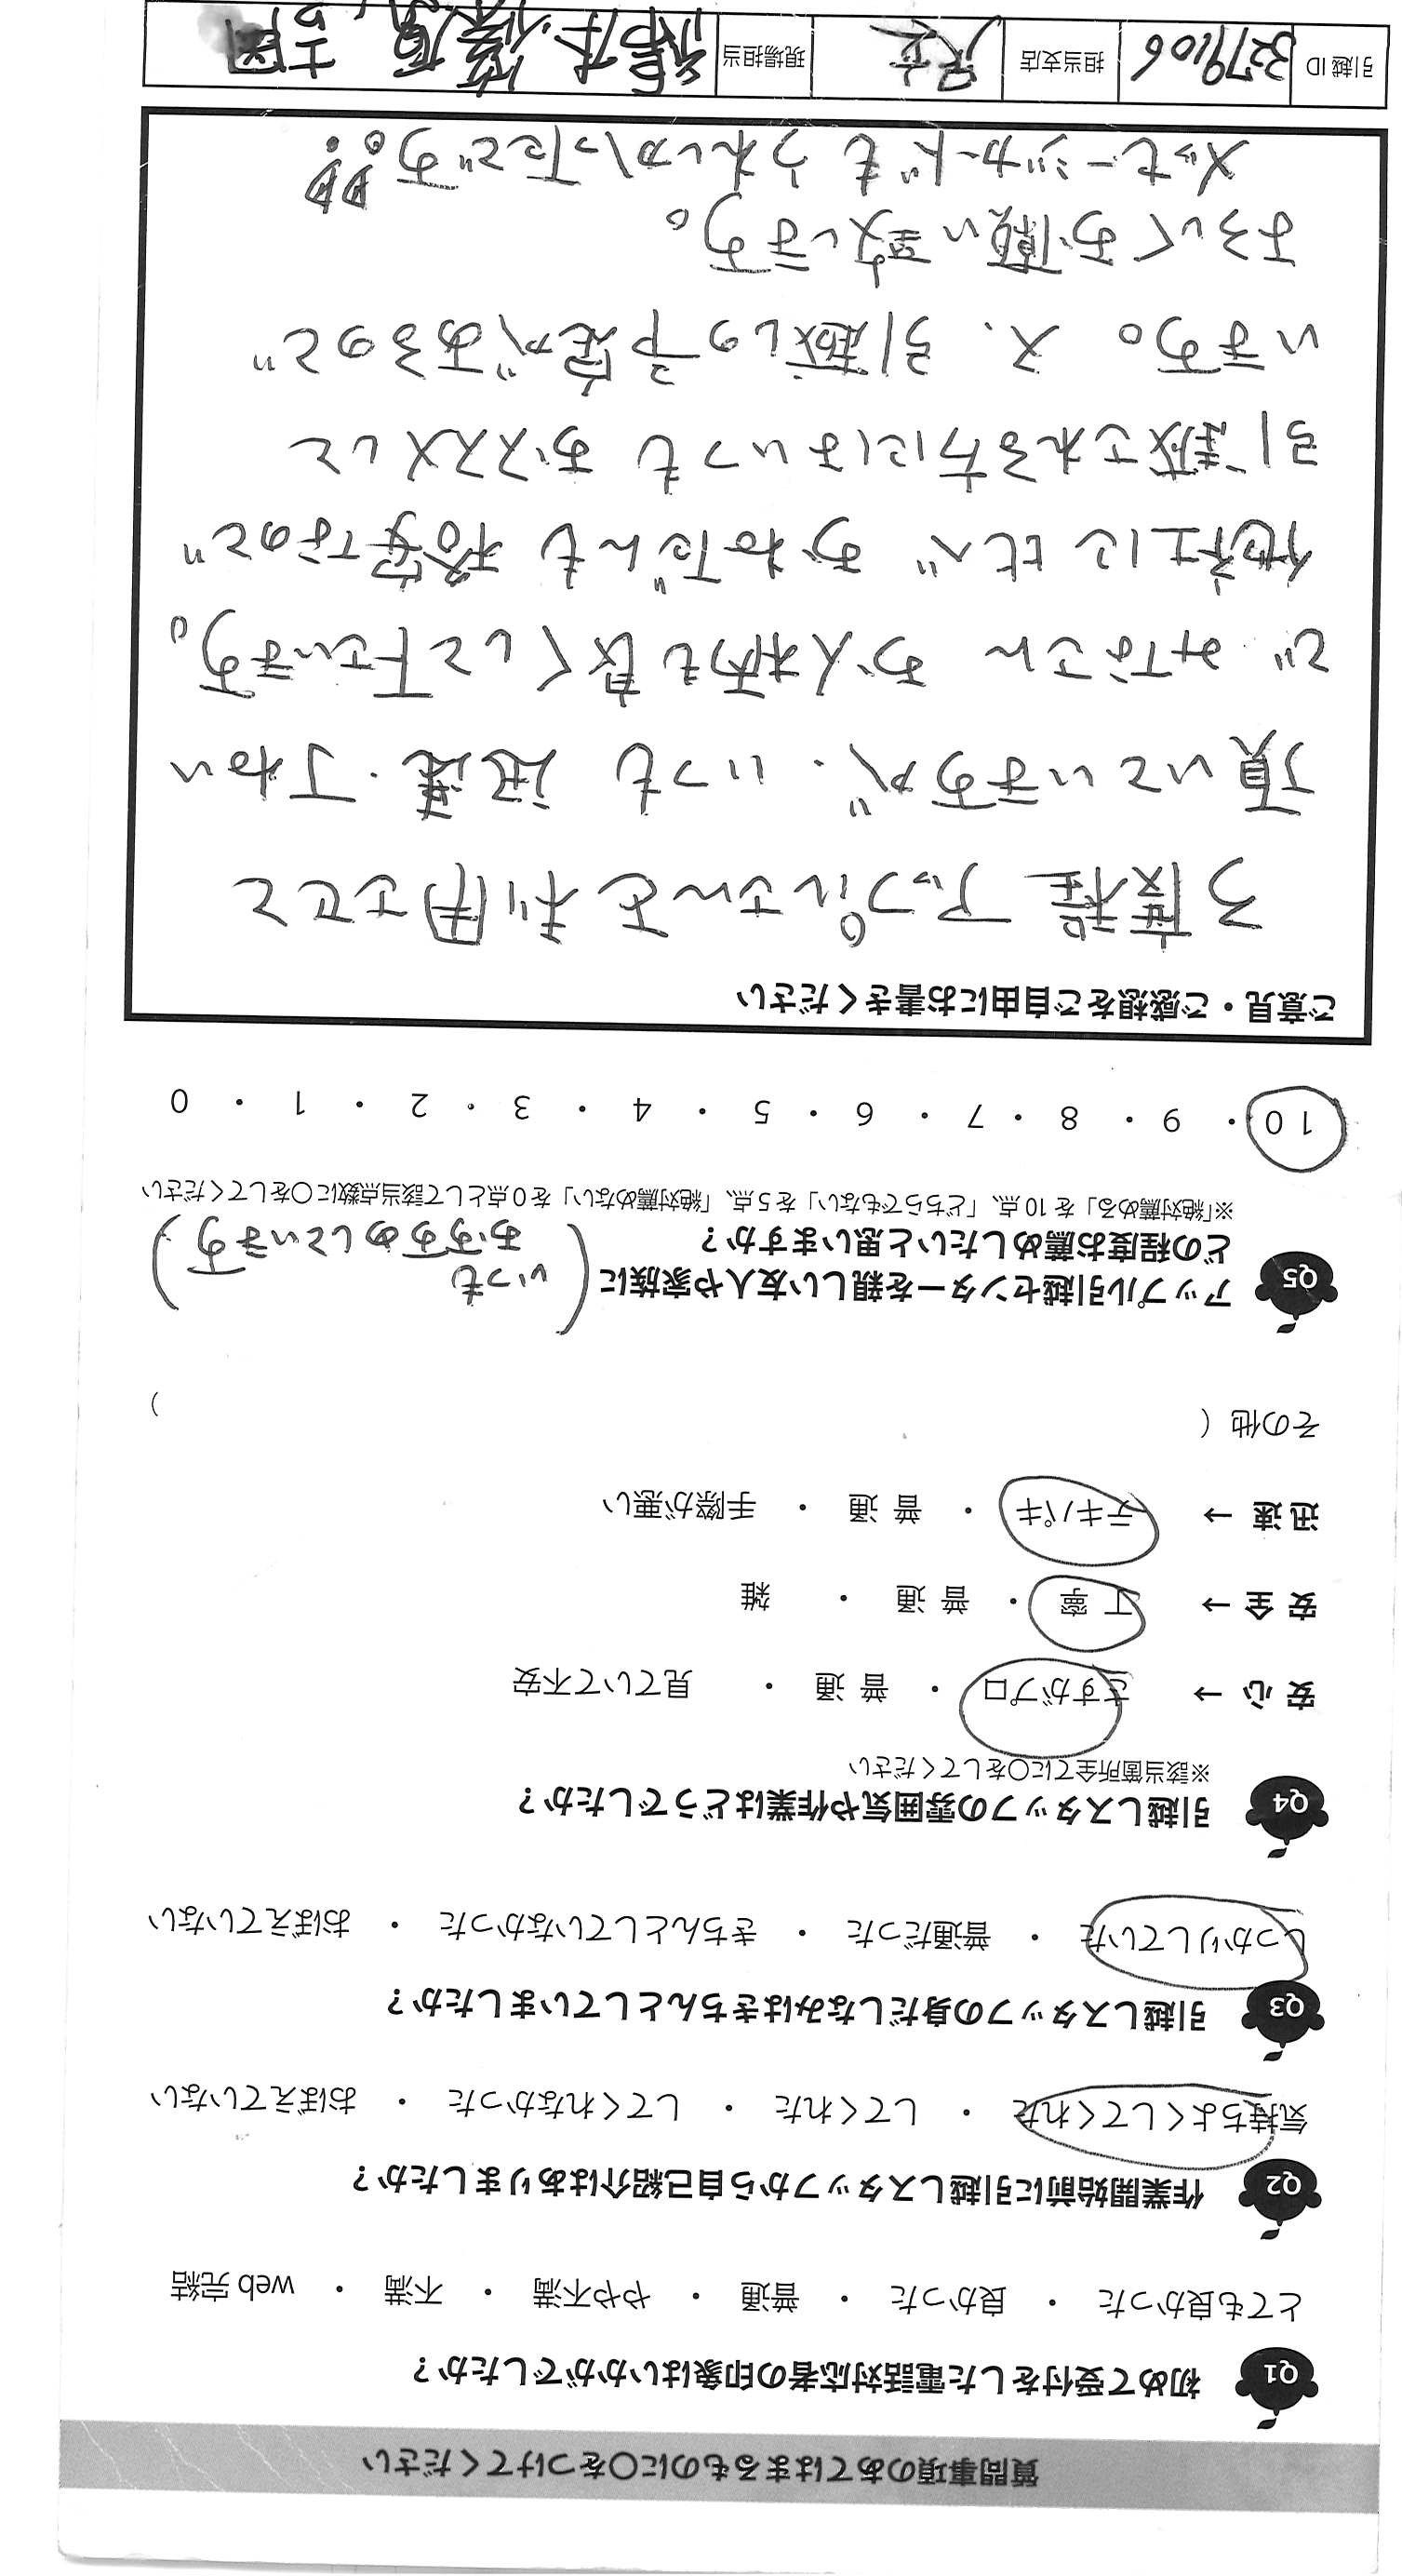 質問事項のあてはまるものに〇をつけてください
Q1 初めて受付をした電話対応者の印象はいかがでしたか？
とても良かった ・ 良かった ・ 普通 ・ やや不満 ・ 不満 ・ web 完結
Q2 作業開始前に引越しスタッフから自己紹介はありましたか？
気持ちよくしてくれた ・ してくれた ・ してくれなかった ・ おぼえていない
Q3 引越しスタッフの身だしなみはきちんとしていましたか？
しっかりしていた ・ 普通だった ・ きちんとしていなかった ・ おぼえていない
Q4 引越しスタッフの雰囲気や作業はどうでしたか？
※該当箇所全てに〇をしてください
安 心 → さすがプロ ・ 普 通 ・ 見ていて不安
安 全 → 丁 寧 ・ 普 通 ・ 雑
迅 速 → テキパキ ・ 普 通 ・ 手際が悪い
その他（ ）
Q5 アップル引越センターを親しい友人や家族に
どの程度お薦めしたいと思いますか？
（いつも
おすすめしています）
※「絶対薦める」を 10 点、「どちらでもない」を 5 点、「絶対薦めない」を 0 点として該当点数に〇をしてください
10 ・ 9 ・ 8 ・ 7 ・ 6 ・ 5 ・ 4 ・ 3 ・ 2 ・ 1 ・ 0
ご意見・ご感想をご自由にお書きください
3度程 アップルさんを利用させて
頂いていますが、いつも 迅速・丁ねい
で みなさん お人柄も良くして下さいます。
他社に比べ おねだんも 格安なので
引越される方にはいつも おススメして
います。 又、引越しの予定があるので
よろしくお願い致します。
メッセージカードも うれしかったです。!!
引越 ID 3279106 担当支店 足立 現場担当